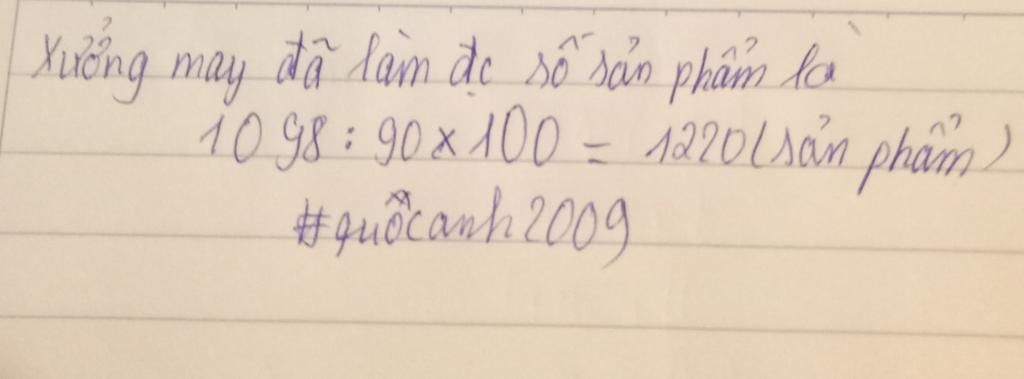 Xưởng may đã làm đc số sản phẩm là
1098 : 90 x 100 = 1220 (sản phẩm)
#quôcanh2009